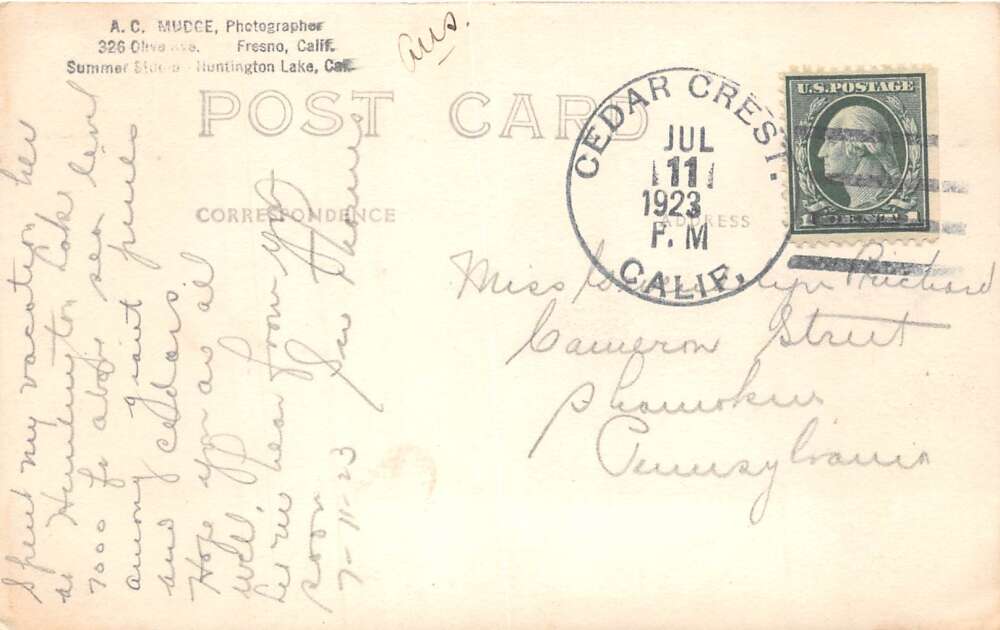 A. C. MUDGE, Photographer
326 Olive Ave. Fresno, Calif.
Summer Studio - Huntington Lake, Cal.
Ans.
POST CARD
CEDAR CREST.
JUL
11
1923
P. M
CALIF.
U.S. POSTAGE
1 CENT 1
CORRESPONDENCE
ADDRESS
Spent my vacation here
at Huntington Lake
7000 ft above sea level
among giant pines
and cedars.
Hope you are all
well,
Let me hear from you
soon
7-11-23
Miss Prichard
Cameron Street
Shamokin
Pennsylvania